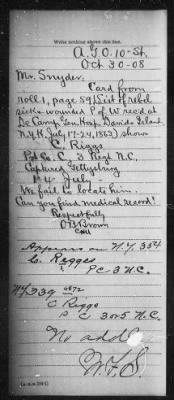 Write nothing above this line.
A.G.O. 10-St.
Oct 30-08
Mr. Snyder.
Card from
roll 1, page 59 (List of rebel
sick & wounded P of W rec'd at
De Camp Gen. Hosp. Davids Island
N.Y.H. July 17-24, 1863) shows
C. Riggs
Pvt Co. C, 3 Regt N.C.
Captured Gettysburg
July
We fail to locate him.
Can you find medical record?
Respectfully
O B Brown
Appears on N.Y. 354
C. Rigges
P C 3 N.C.
N.Y. 339
C Riggs
P C 3 or 5 N.C.
No addl